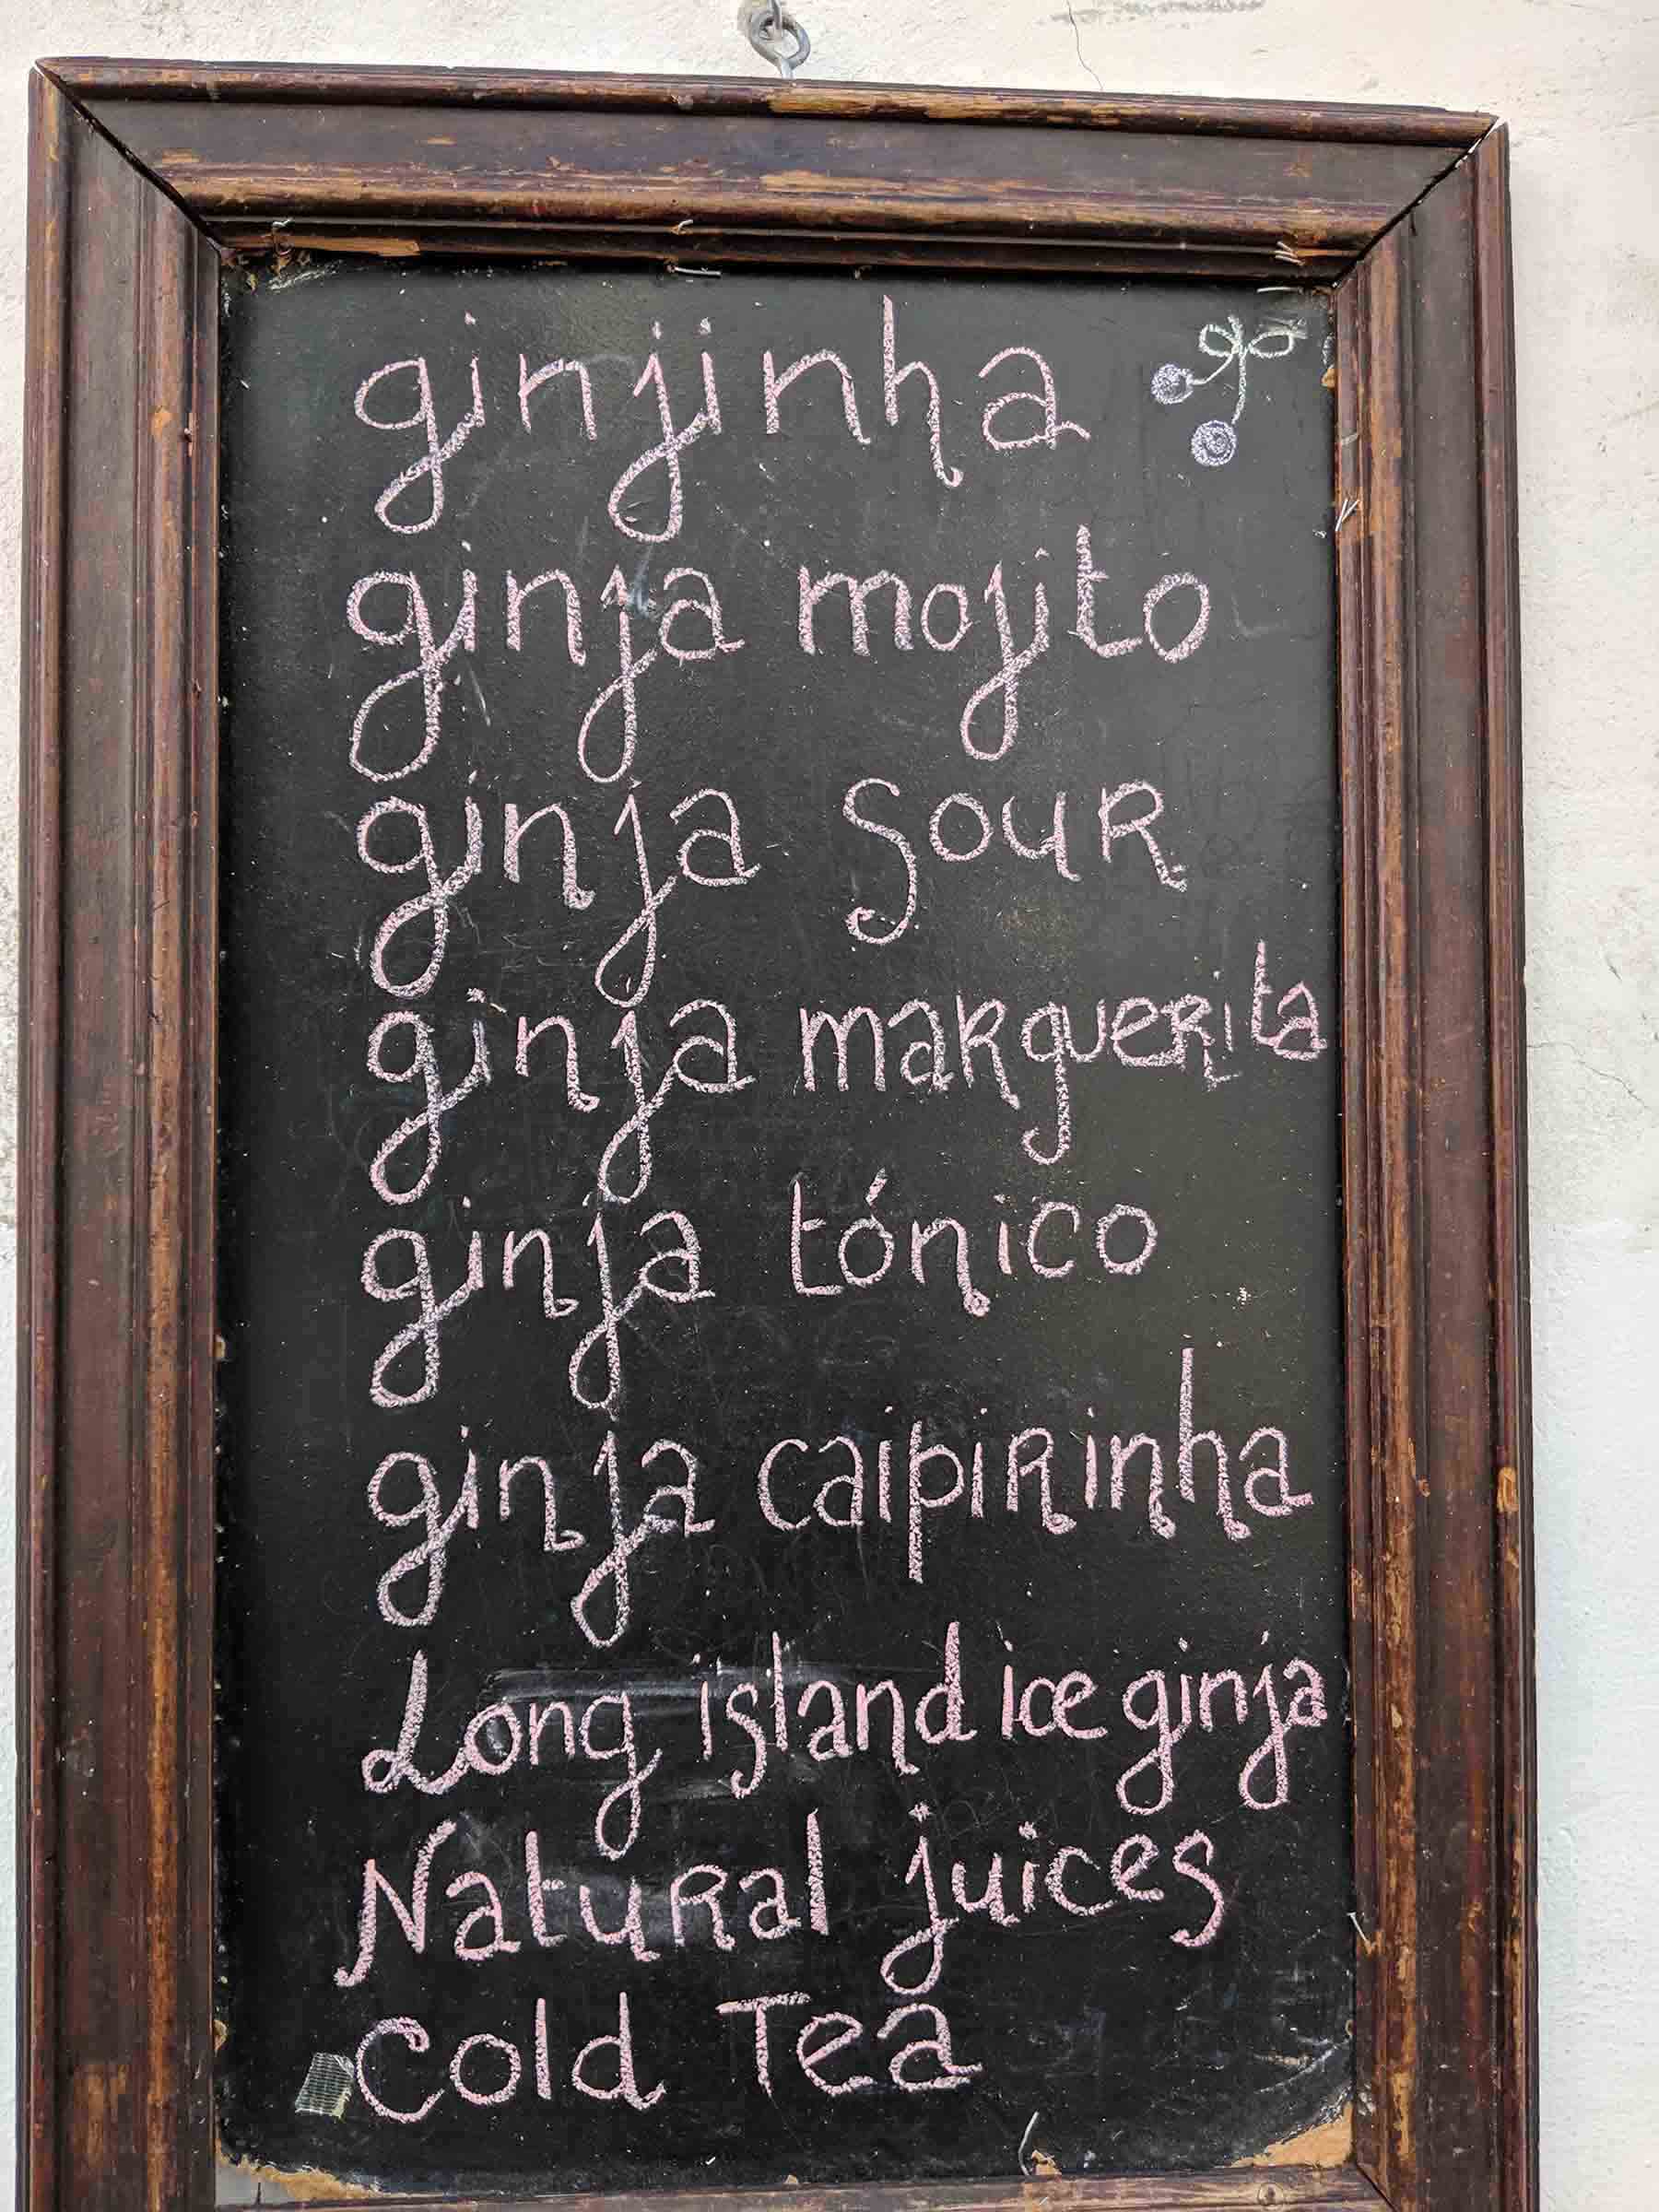 ginjinha
ginja mojito
ginja sour
ginja marguerita
ginja tónico
ginja caipirinha
Long island ice ginja
Natural juices
Cold Tea